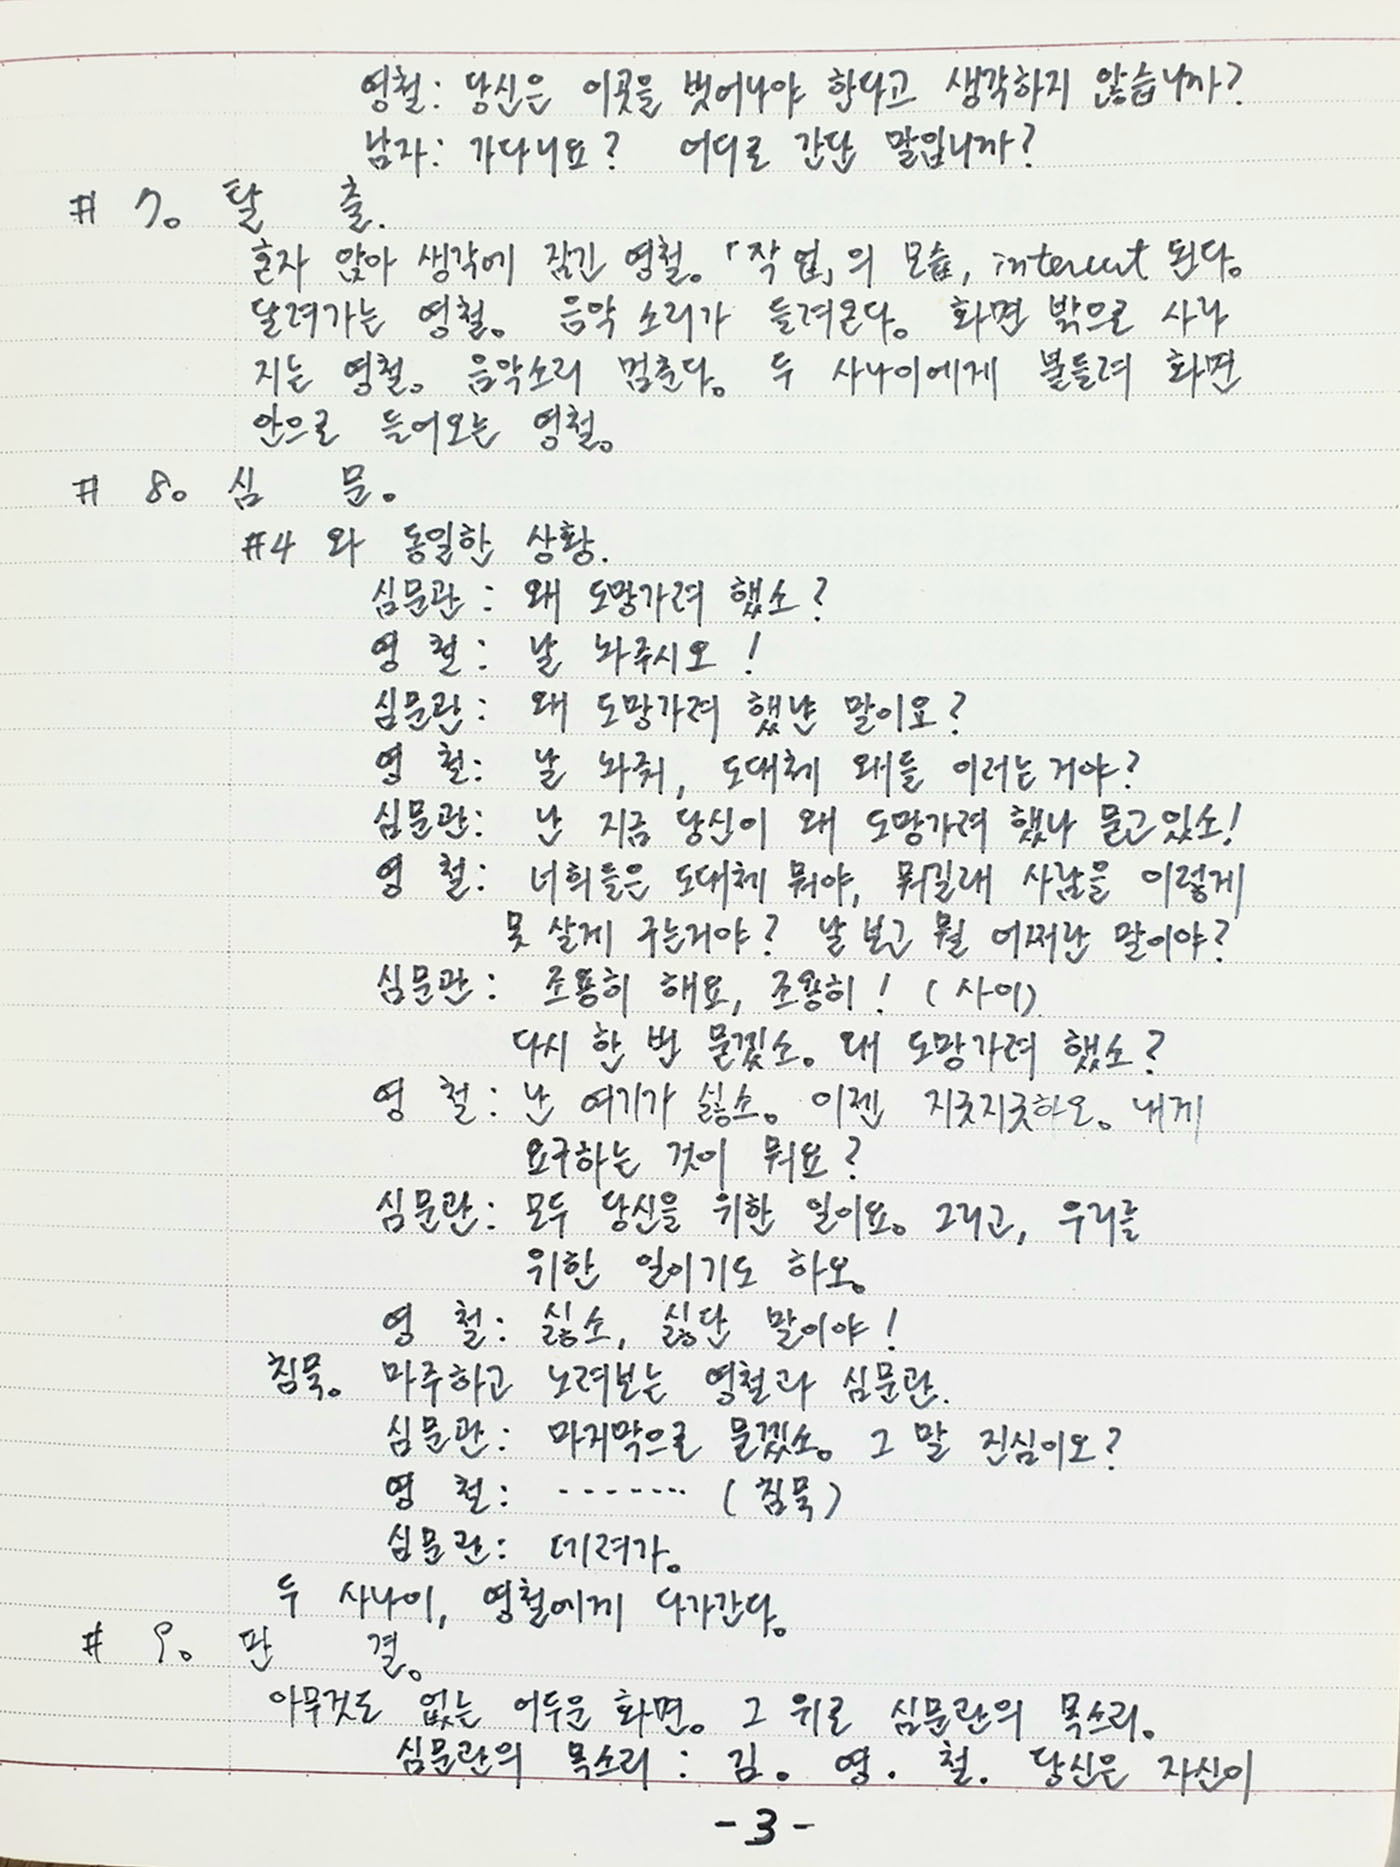 영철: 당신은 이곳을 벗어나야 한다고 생각하지 않습니까?
남자: 가다니요? 어디로 간단 말입니까?
# 7。 탈 출.
혼자 앉아 생각에 잠긴 영철。「작업」의 모습, intercut 된다。
달려가는 영철。 음악 소리가 들려온다。 화면 밖으로 사라
지는 영철。 음악소리 멈춘다。 두 사나이에게 붙들려 화면
안으로 들어오는 영철。
# 8。 심 문。
#4 와 동일한 상황.
심문관 : 왜 도망가려 했소?
영 철 : 날 놔주시오 !
심문관 : 왜 도망가려 했냔 말이요?
영 철 : 날 놔줘, 도대체 왜들 이러는거야?
심문관 : 난 지금 당신이 왜 도망가려 했나 묻고있소!
영 철 : 너희들은 도대체 뭐야, 뭐길래 사람을 이렇게
못 살게 구는거야? 날 보고 뭘 어쩌란 말이야?
심문관 : 조용히 해요, 조용히 ! (사이)
다시 한 번 묻겠소。 왜 도망가려 했소?
영 철 : 난 여기가 싫소。 이젠 지긋지긋하오。 내게
요구하는 것이 뭐요?
심문관 : 모두 당신을 위한 일이요。 그리고, 우리를
위한 일이기도 하오。
영 철 : 싫소, 싫단 말이야!
침묵。 마주하고 노려보는 영철과 심문관.
심문관 : 마지막으로 묻겠소。 그 말 진심이오?
영 철 : ······· (침묵)
심문관 : 데려가。
두 사나이, 영철에게 다가간다。
# 9。 판 결。
아무것도 없는 어두운 화면。 그 위로 심문관의 목소리。
심문관의 목소리 : 김。 영. 철. 당신은 자신이
-3-